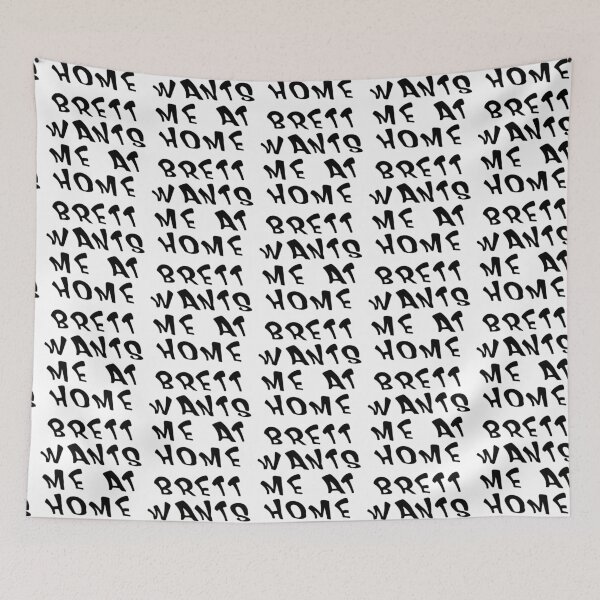 HOME
BRETT
WANTS
ME AT
HOME
BRETT
WANTS
ME AT
HOME
BRETT
WANTS
ME AT
HOME
BRETT
WANTS
ME AT
HOME
WANTS
ME AT
HOME
BRETT
WANTS
ME AT
HOME
BRETT
WANTS
ME AT
HOME
BRETT
WANTS
ME AT
HOME
BRETT
WANTS
HOME
BRETT
WANTS
ME AT
HOME
BRETT
WANTS
ME AT
HOME
BRETT
WANTS
ME AT
HOME
BRETT
WANTS
ME AT
HOME
WANTS
ME AT
HOME
BRETT
WANTS
ME AT
HOME
BRETT
WANTS
ME AT
HOME
BRETT
WANTS
ME AT
HOME
BRETT
WANTS
HOME
BRETT
WANTS
ME AT
HOME
BRETT
WANTS
ME AT
HOME
BRETT
WANTS
ME AT
HOME
BRETT
WANTS
ME AT
HOME